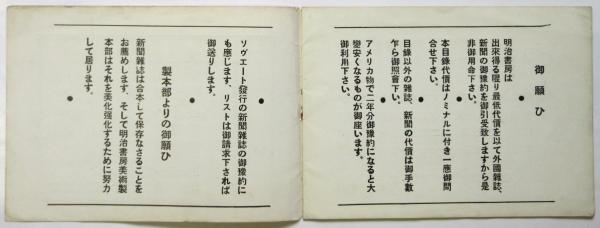 御願ひ
明治書房は
出來得る限り最低代價を以て外國雜誌、
新聞の御豫約を御引受致しますから是
非御用命下さい。
●
本目錄代價はノミナルに付き一應御問
合せ下さい。
●
目錄以外の雜誌、新聞の代價は御手數
乍ら御照會下い。
●
アメリカ物で二年分御豫約になると大
變安くなるものが御座います。
御利用下さい。
●
ソヴェート發行の新聞雜誌の御豫約に
も應じます、リストは御請求下されば
御送りします。
●
製本部よりの御願ひ
新聞雜誌は合本して保存なさることを
お薦めします、そして明治書房美術製
本部はそれを美化强化するために努力
して居ります。
●